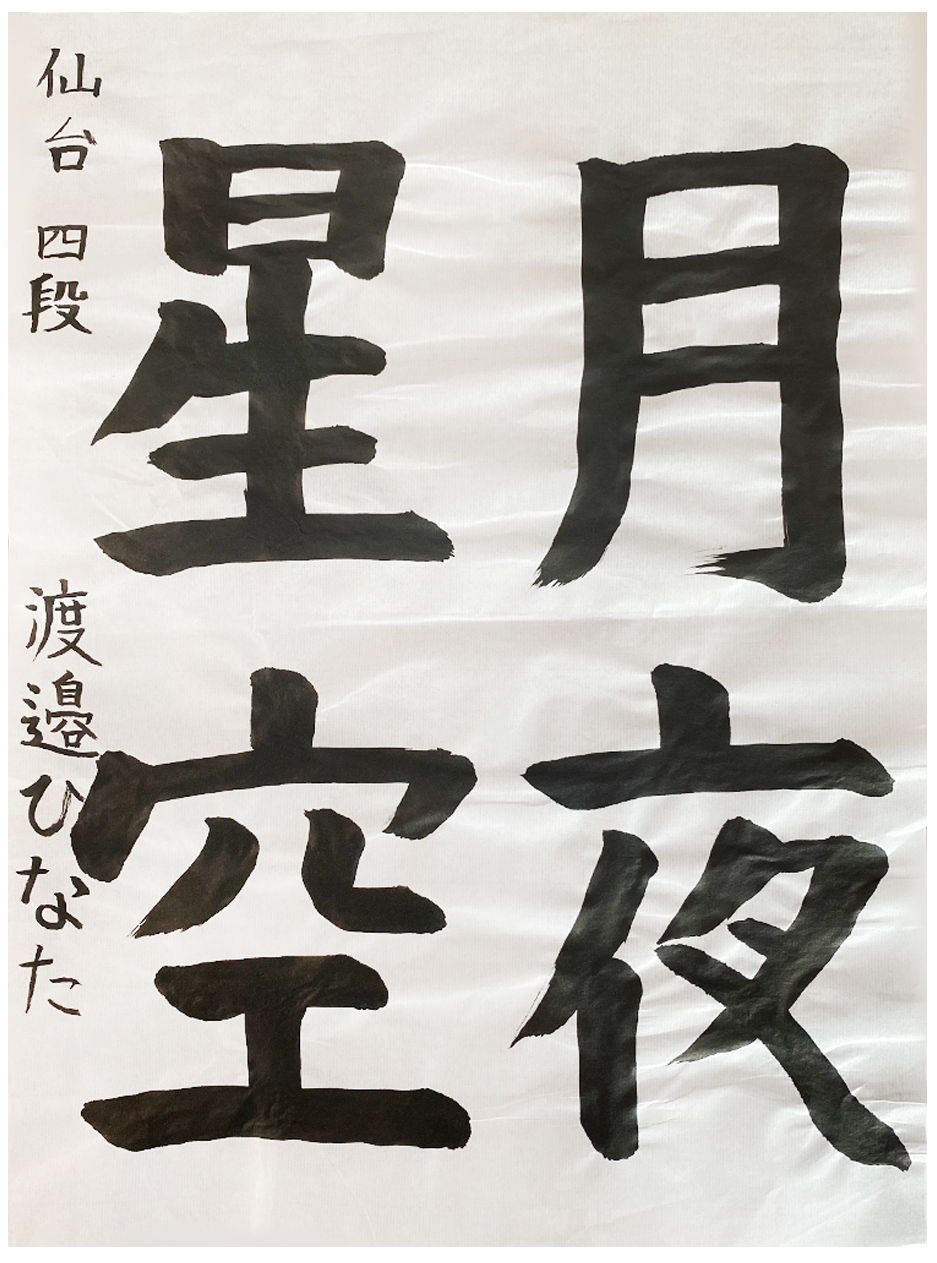 月夜
星空
仙台 四段 渡邉ひなた